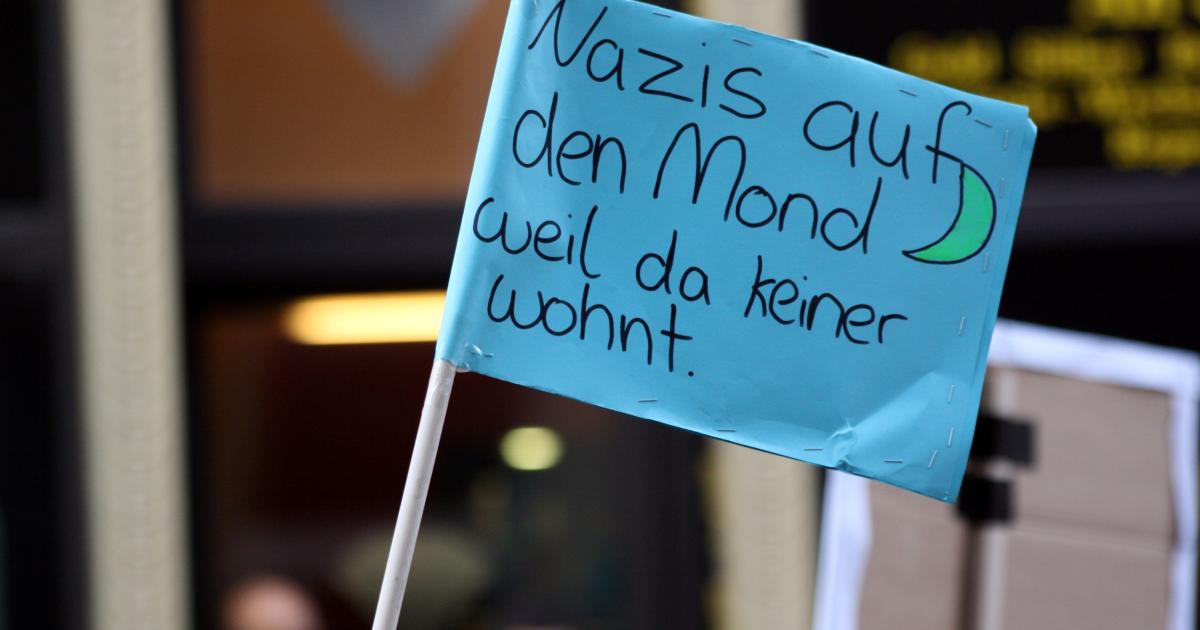 Nazis auf
den Mond
weil da keiner
wohnt.